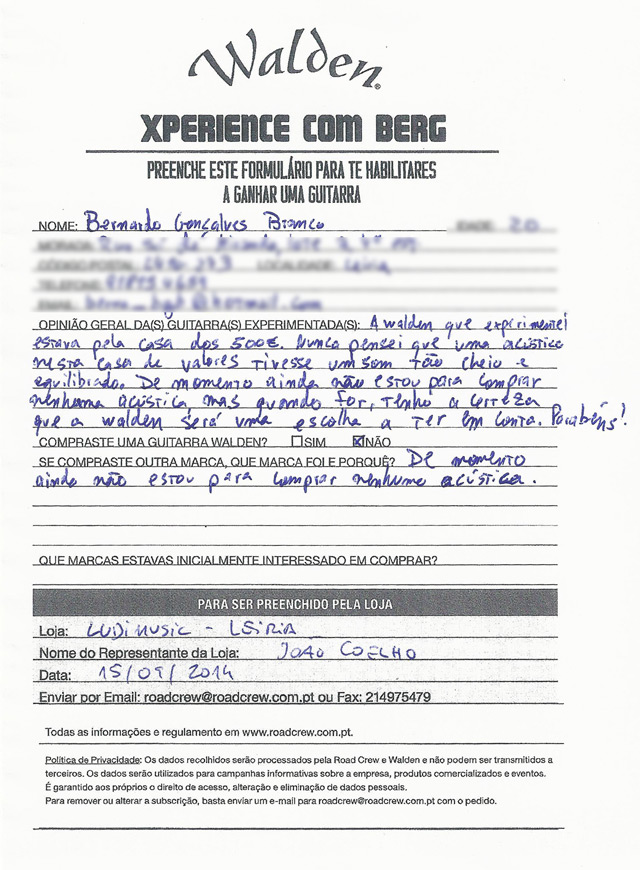 Walden®
XPERIENCE COM BERG
PREENCHE ESTE FORMULÁRIO PARA TE HABILITARES
A GANHAR UMA GUITARRA
NOME: Bernardo Gonçalves Branco
OPINIÃO GERAL DA(S) GUITARRA(S) EXPERIMENTADA(S): A walden que experimentei
estava pela casa dos 500€. Nunca pensei que uma acústica
nesta casa de valores tivesse um som tão cheio e
equilibrado. De momento ainda não estou para comprar
nenhuma acústica mas quando for, tenho a certeza
que a walden será uma escolha a ter em conta. Parabéns!
COMPRASTE UMA GUITARRA WALDEN? ☐SIM ☒NÃO
SE COMPRASTE OUTRA MARCA, QUE MARCA FOI E PORQUÊ? De momento
ainda não estou para comprar nenhuma acústica.
QUE MARCAS ESTAVAS INICIALMENTE INTERESSADO EM COMPRAR?
PARA SER PREENCHIDO PELA LOJA
Loja: LUDIMUSIC - LEIRIA
Nome do Representante da Loja: JOAO COELHO
Data: 15/09/2014
Enviar por Email: roadcrew@roadcrew.com.pt ou Fax: 214975479
Todas as informações e regulamento em www.roadcrew.com.pt.
Política de Privacidade: Os dados recolhidos serão processados pela Road Crew e Walden e não podem ser transmitidos a
terceiros. Os dados serão utilizados para campanhas informativas sobre a empresa, produtos comercializados e eventos.
É garantido aos próprios o direito de acesso, alteração e eliminação de dados pessoais.
Para remover ou alterar a subscrição, basta enviar um e-mail para roadcrew@roadcrew.com.pt com o pedido.